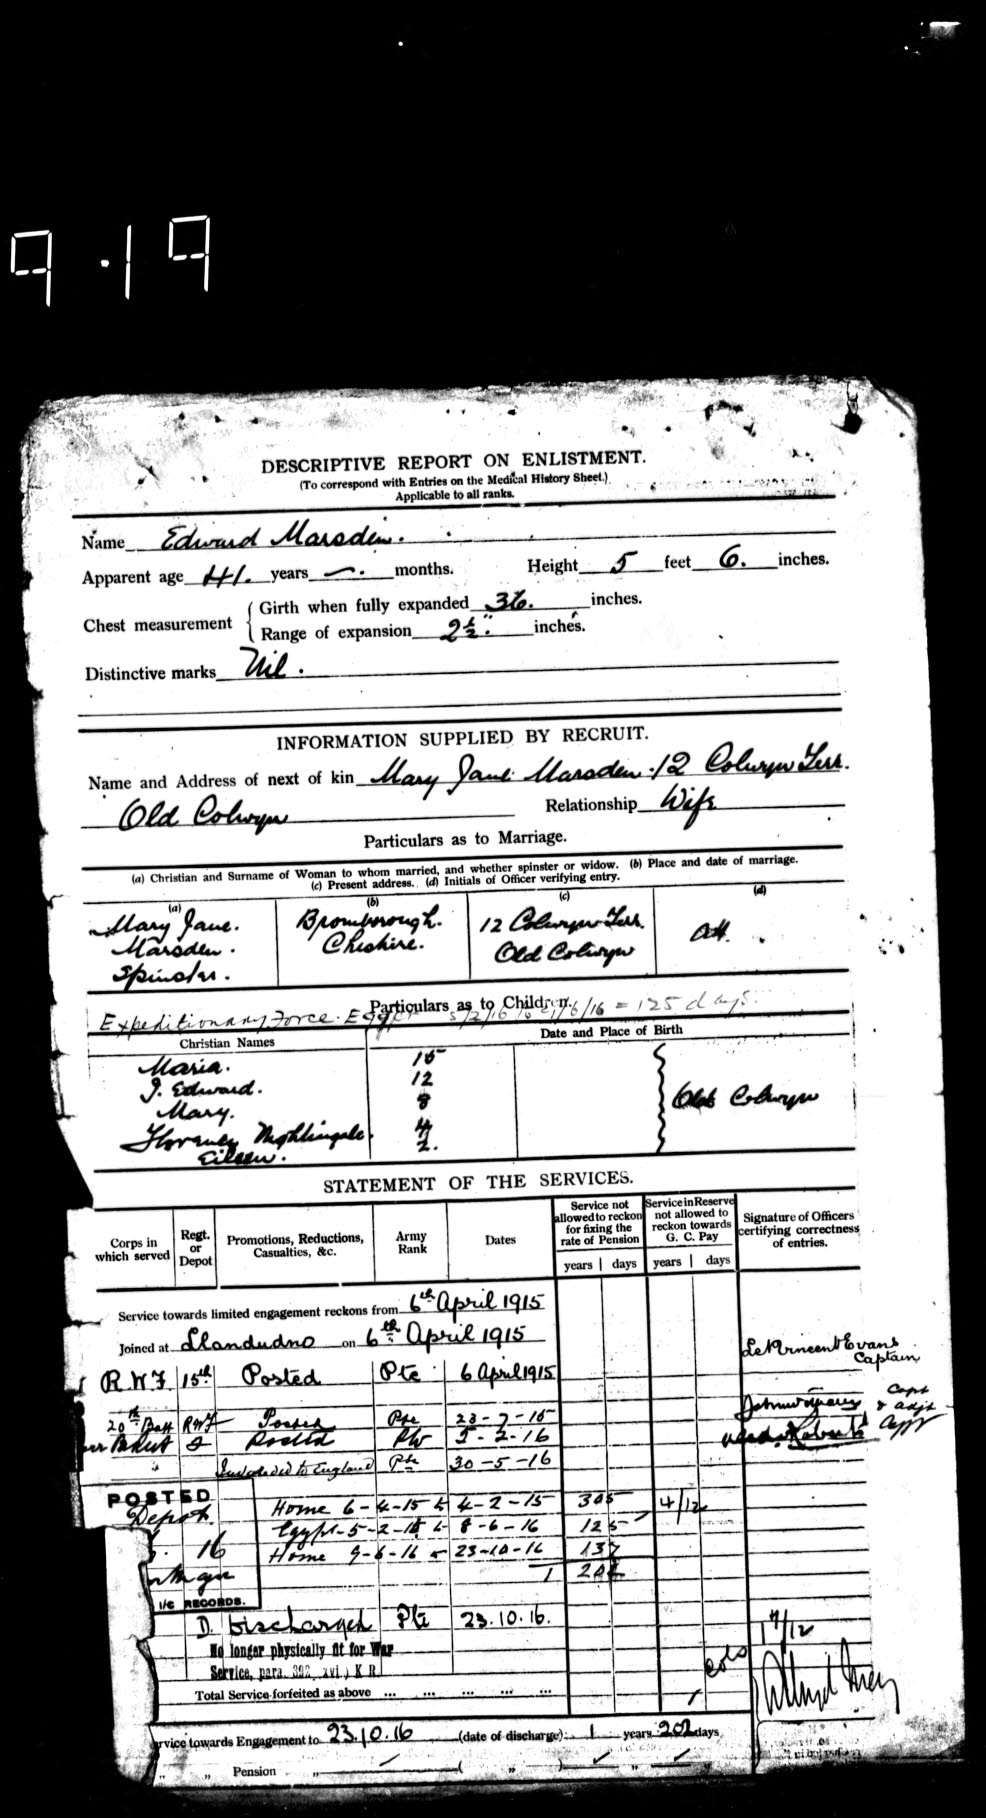 9.19
DESCRIPTIVE REPORT ON ENLISTMENT.
(To correspond with Entries on the Medical History Sheet.)
Applicable to all ranks.
Name Edward Marsden.
Apparent age 41. years — months. Height 5 feet 6. inches.
Chest measurement
Girth when fully expanded 36. inches.
Range of expansion 2½". inches.
Distinctive marks Nil.
INFORMATION SUPPLIED BY RECRUIT.
Name and Address of next of kin Mary Jane Marsden 12 Colwyn Terr.
Old Colwyn Relationship Wife
Particulars as to Marriage.
(a) Christian and Surname of Woman to whom married, and whether spinster or widow. (b) Place and date of marriage.
(c) Present address. (d) Initials of Officer verifying entry.
(a) (b) (c) (d)
Mary Jane. Bromborough. 12 Colwyn Terr.
Marsden. Cheshire. Old Colwyn
Spinster.
Particulars as to Children.
Expeditionary Force. Egypt 5/2/16 to /6/16 = 125 days.
Christian Names Date and Place of Birth
Maria. 15
J. Edward. 12
Mary. 8 Old Colwyn
Florence Nightingale. 4
Eileen. 2.
STATEMENT OF THE SERVICES.
Corps in which served | Regt. or Depot | Promotions, Reductions, Casualties, &c. | Army Rank | Dates | Service not allowed to reckon for fixing the rate of Pension | Service in Reserve not allowed to reckon towards G. C. Pay | Signature of Officers certifying correctness of entries.
years | days years | days
Service towards limited engagement reckons from 6th April 1915
Joined at Llandudno on 6th April 1915
Vincent Evans
Captain
R.W.F. 15th Posted Pte 6 April 1915
20th Batt RWF Posted Pte 23-7-15 Capt & Adjt
Posted Pte 5-2-16
Invalided to England Pte 30-5-16
POSTED Home 6-4-15 to 4-2-15 305 4/12
Depot. Egypt 5-2-16 to 8-6-16 125
16 Home 9-6-16 to 23-10-16 137
1
I/C RECORDS.
D. Discharged Pte 23.10.16.
No longer physically fit for War
Service, para. 392, xvi.) K R.
Total Service forfeited as above ... ... ... ...
rvice towards Engagement to 23.10.16 (date of discharge) 1 years 202 days
" " Pension " ( " ) " "